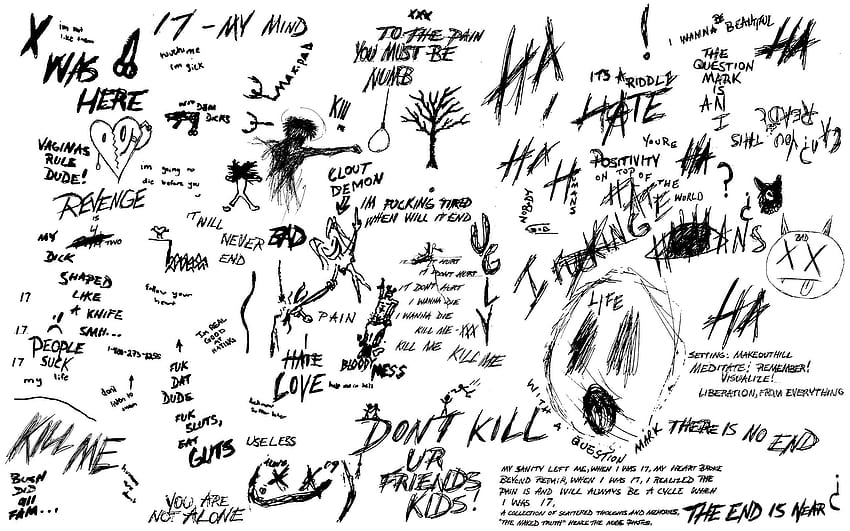 X
im not
like them
17 - MY MIND
WAS
HERE
XXX
TO THE PAIN
YOU MUST BE
NUMB
im sick
DEM
DICKS
KIll
VAGINAS
RULE
DUDE!
im going to
die before you
REVENGE
IS
4
MY
TWO
DICK
IT WILL
NEVER
END
BAD
CLOUT
DEMON
IM FUCKING TIRED
WHEN WILL IT END
UGLY
IT DONT HURT
IT DONT HURT
IT DONT HURT
I WANNA DIE
I WANNA DIE
KILL ME - XXX
KILL ME
KILL ME
SHAPED
LIKE
A KNIFE
SMH...
17
17
17
PEOPLE
SUCK
my life
follow your
heart
IM REAL
GOOD
AT
HATING
PAIN
I HATE
LOVE
BLOOD
MESS
help me im hell
dont
listen to
them
FUK
DAT
DUDE
FUK
SLUTS,
EAT
GUTS
USELESS
KILL ME
BURN
DID
all
FAM...
YOU ARE
NOT ALONE
DON'T KILL
UR
FRIENDS
KIDS!
HA
!
I WANNA BE BEAUTIFUL
HA
ITS A RIDDLE
THE
QUESTION
MARK
IS
AN
I
I HATE
READ
THIS
YOU
HA
HUMANS
YOURE
POSITIVITY
ON TOP OF
THE
WORLD
HA
?
¿
NOBODY
I FUCKING HATE
HUMANS
BAD
XX
HA
LIFE
WITH A QUESTION MARK
SETTING: MAKEOUTHILL
MEDITATE! REMEMBER!
VISUALIZE!
LIBERATION, FROM EVERYTHING
THERE IS NO END
MY SANITY LEFT ME, WHEN I WAS 17, MY HEART BROKE
BEYOND REPAIR, WHEN I WAS 17, I REALIZED THE
PAIN IS AND WILL ALWAYS BE A CYCLE WHEN
I WAS 17,
A COLLECTION OF SCATTERED THOUGHTS AND MEMORIES,
"THE NAKED TRUTH" HENCE THE NUDE PHOTOS.
THE END IS NEAR
¿